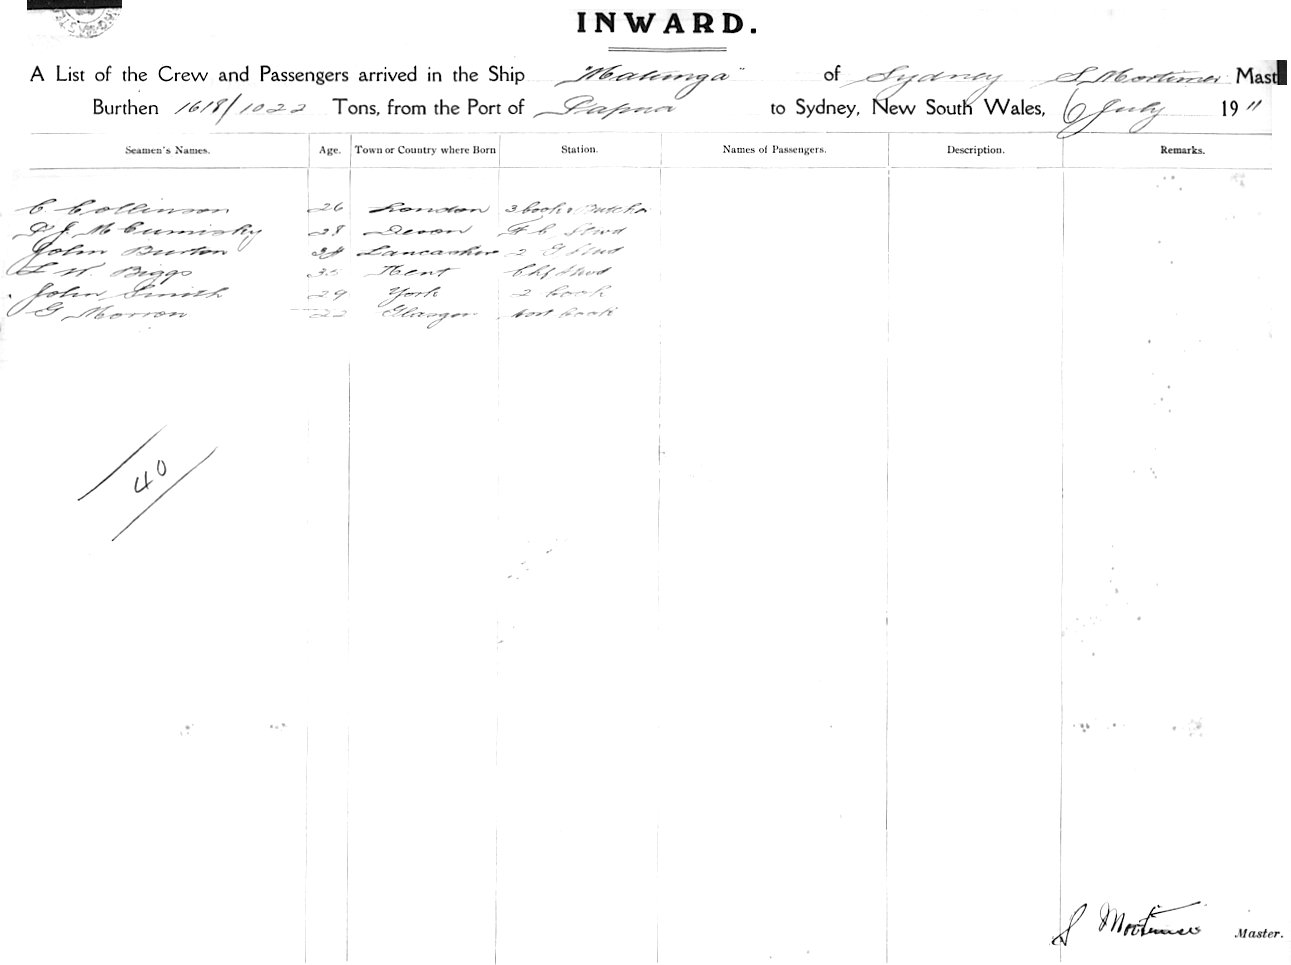 INWARD.
A List of the Crew and Passengers arrived in the Ship "Matunga" of Sydney S. Mortimer Mast
Burthen 1618/1022 Tons, from the Port of Papua to Sydney, New South Wales, 6 July 1911
Seamen's Names. Age. Town or Country where Born Station. Names of Passengers. Description. Remarks.
C. Collinson 26 London 3 Cook & Butcher
P J. McCumisky 28 Devon F C Stwd
John Burton 38 Lancashire 2 G Stwd
L W. Biggs 35 Kent Chf Stwd
John Smith 29 York 2 Cook
G Morron 22 Glasgow Cook
40
S Mortimer Master.